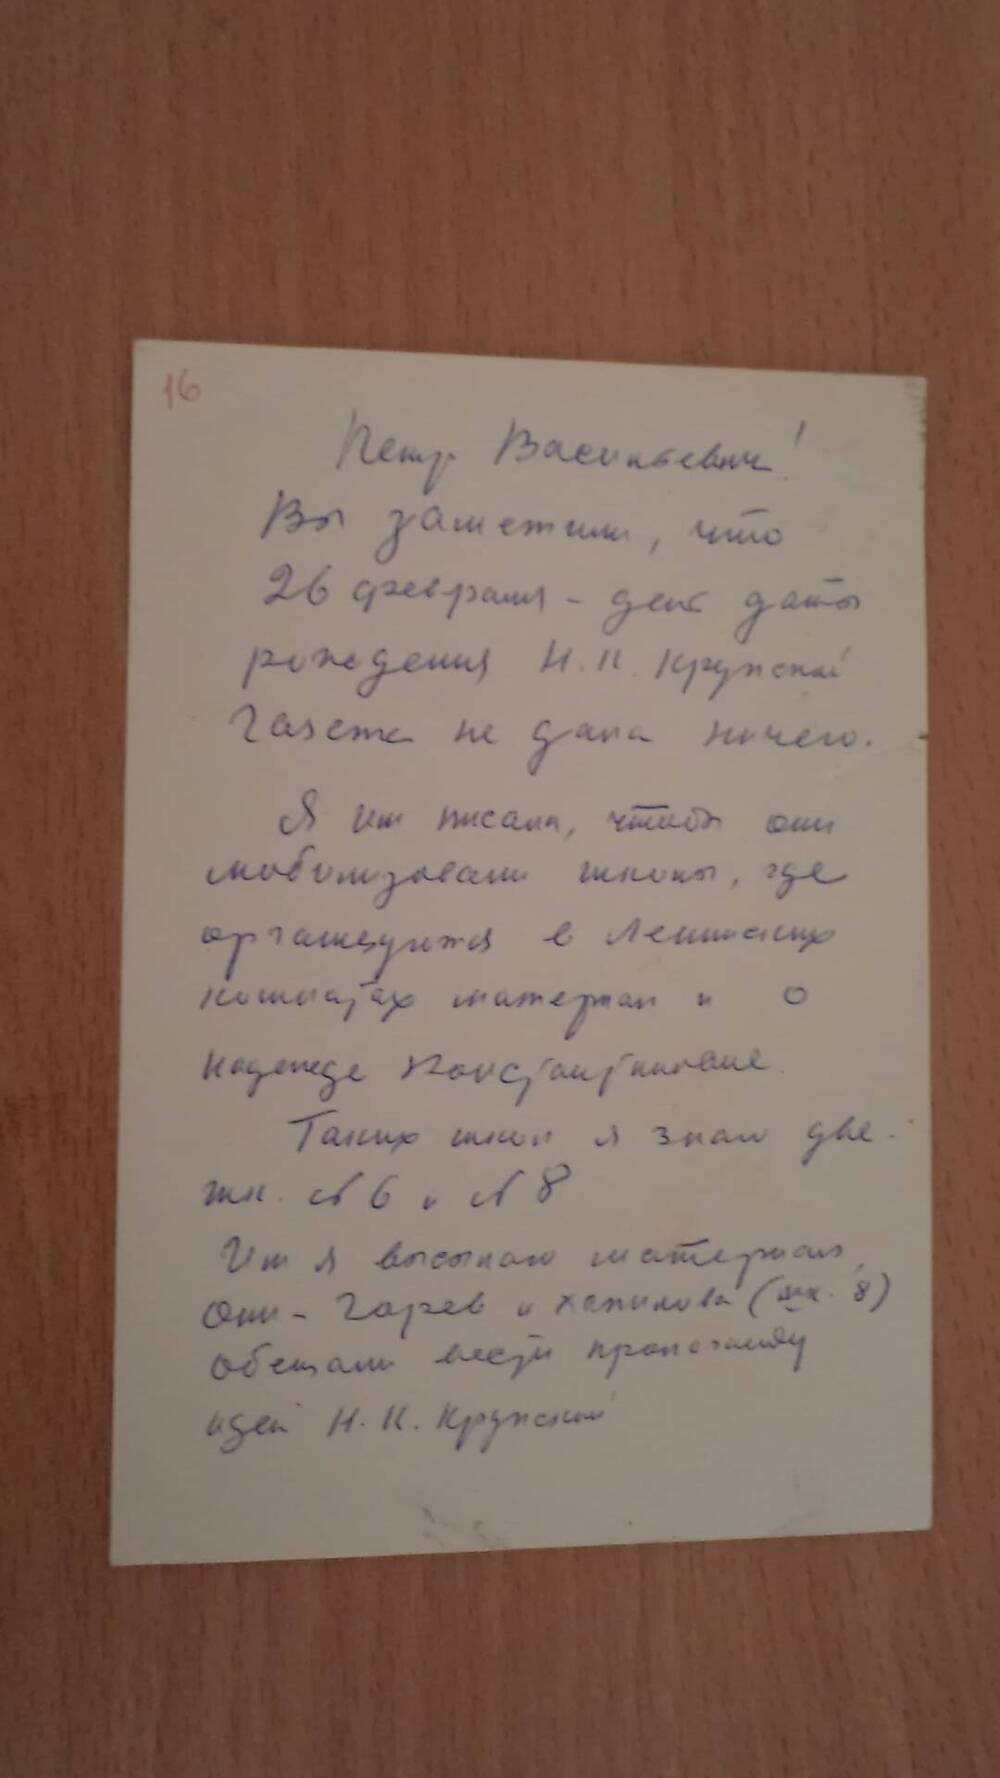 16
Петр Васильевич!
Вы заметили, что
26 февраля – день даты
рождения Н.К. Крупской
газета не дала ничего.
Я им писала, чтобы они
мобилизовали школы, где
организуются в Ленинских
комнатах материал и о
Надежде Константиновне.
Таких школ я знаю две.
шк. № 6 и № 8
Им я высылаю материал,
они – Гарев и (шк. 8)
обещали вести пропаганду
идей Н.К. Крупской